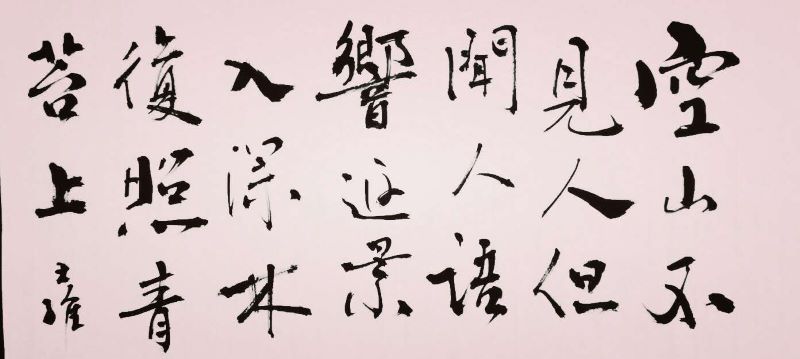 空山不
見人但
聞人語
響返景
入深林
復照青
苔上王維